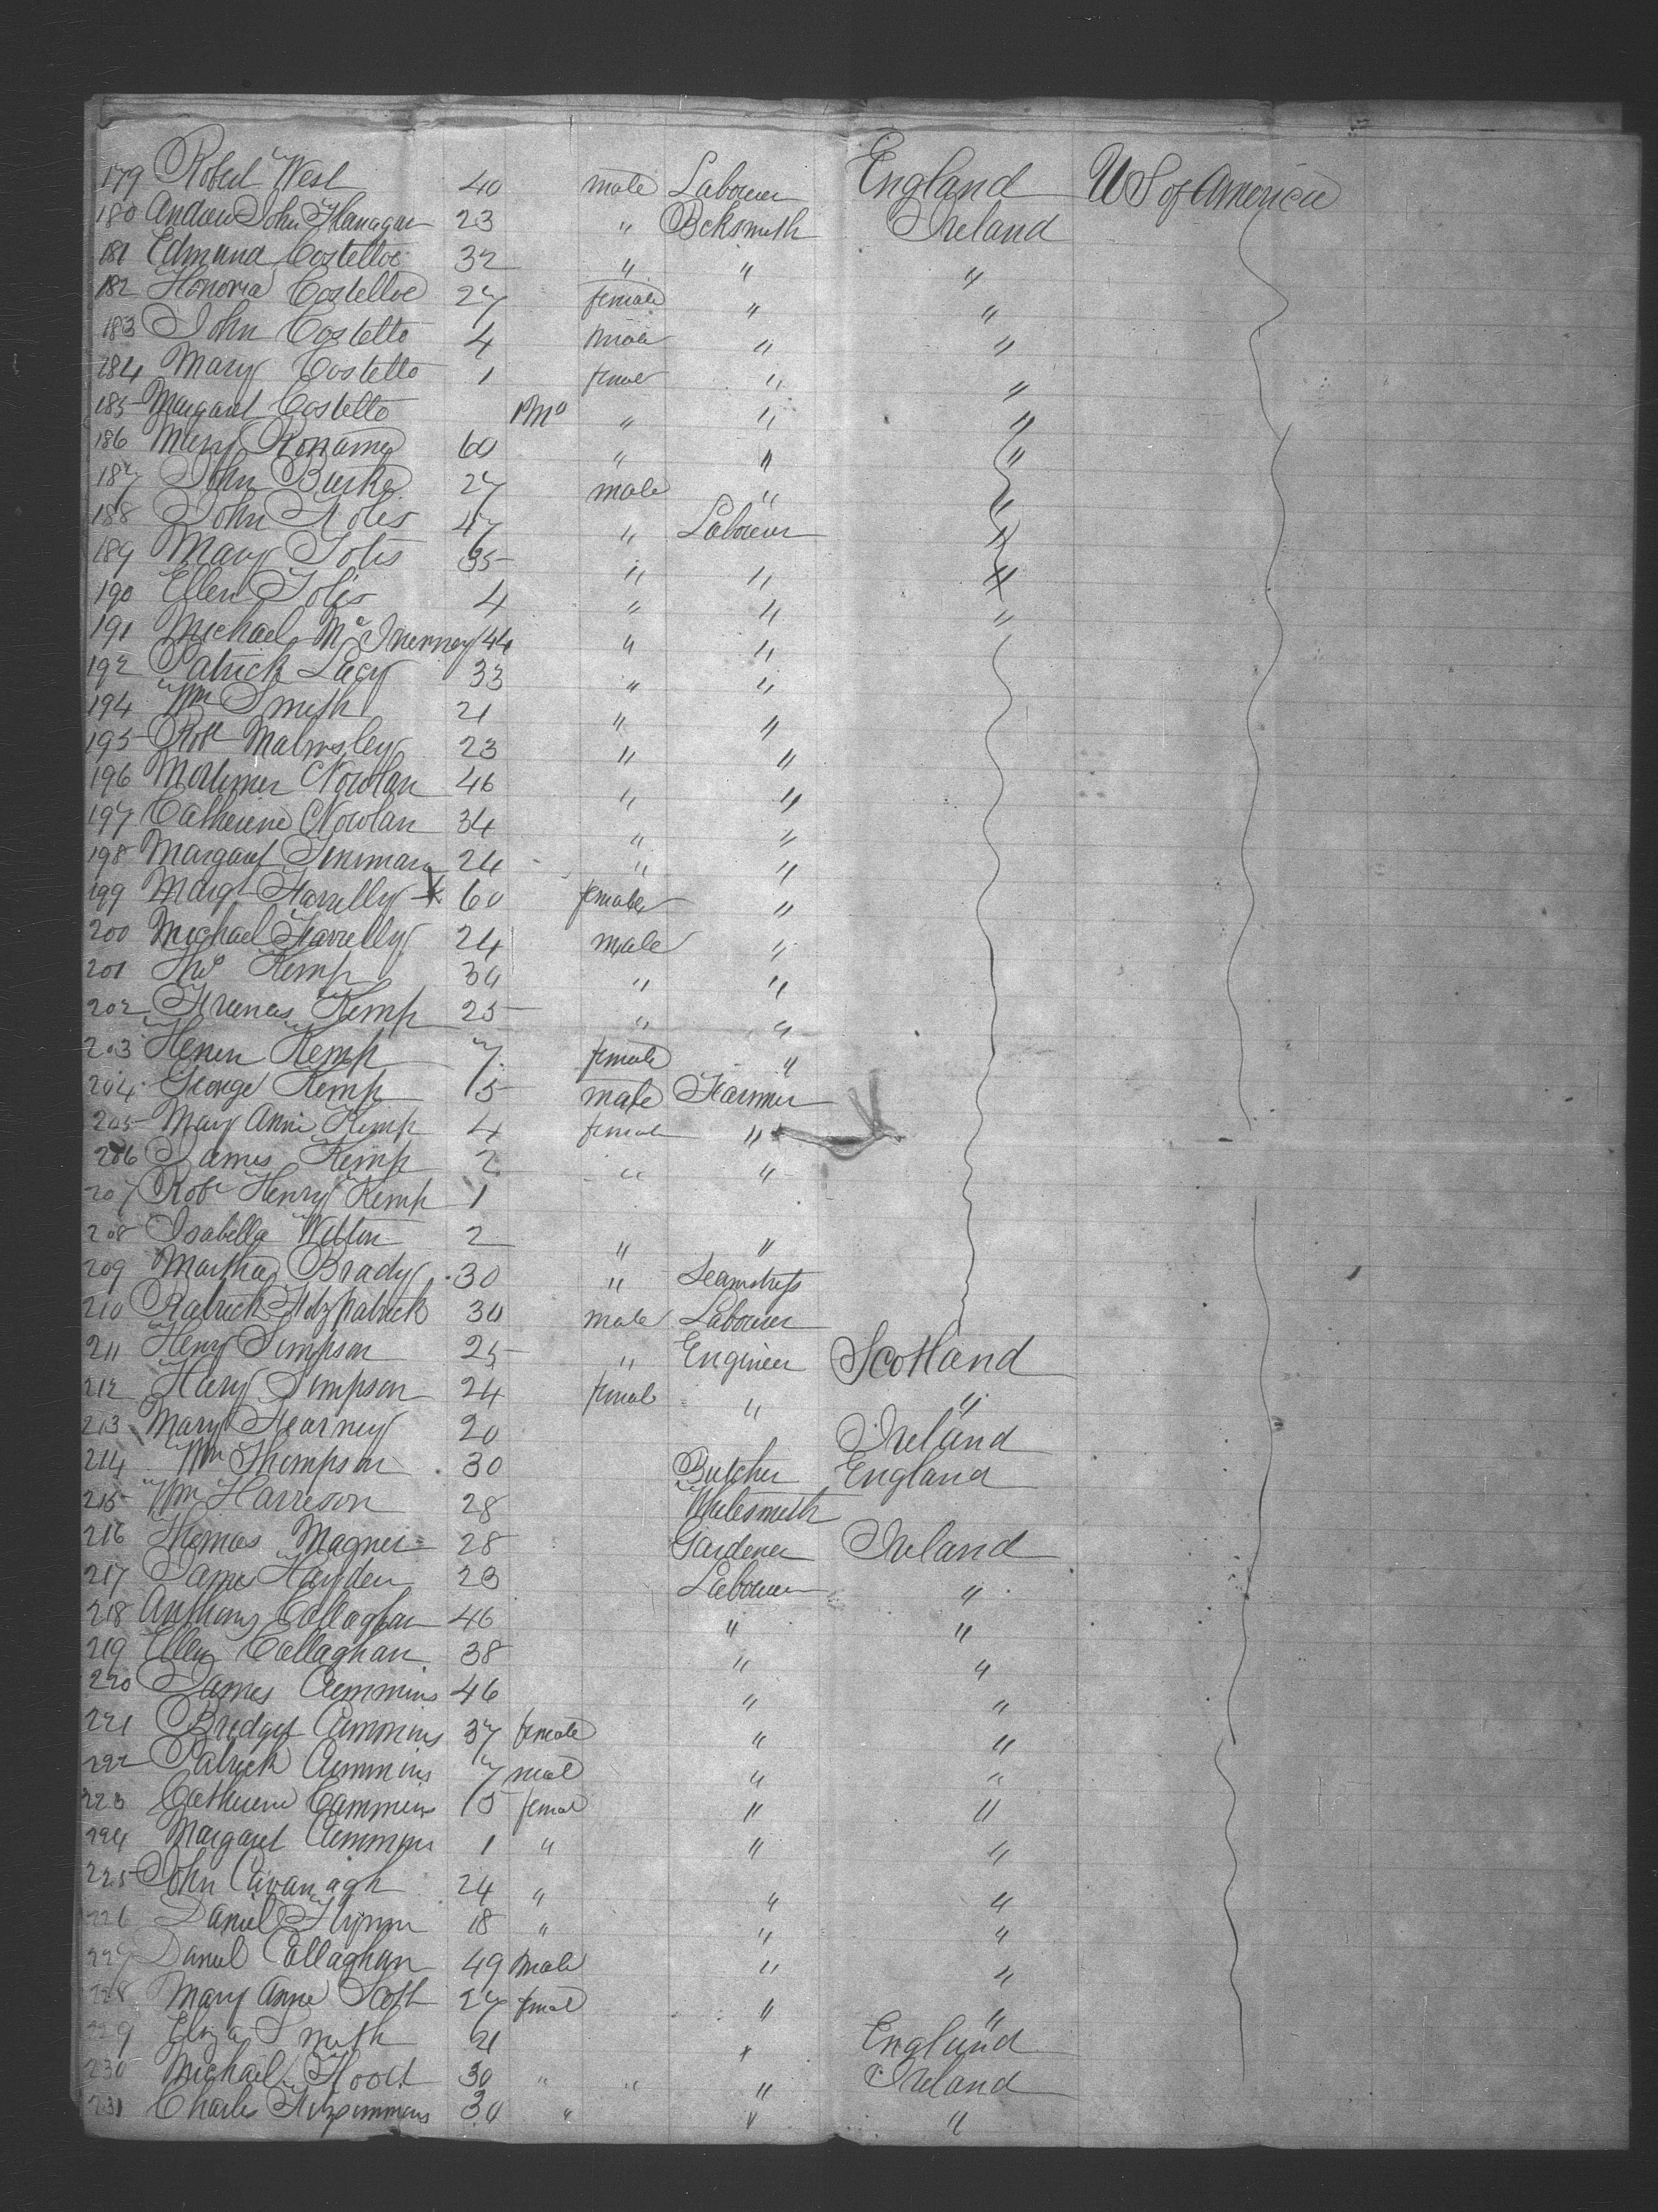 179 Robert West 40 male Labourer England US of America
180 Andrew John Flanagan 23 " Bcksmith Ireland
181 Edmund Costelloe 32 " " "
182 Honoria Costelloe 27 female " "
183 John Costello 4 male " "
184 Mary Costello 1 female " "
185 Margaret Costello 1 Mo " " "
186 Mary 60 " " "
187 John Burke 27 male " "
188 John 47 " Labourer "
189 Mary 35 " " "
190 Ellen 4 " " "
191 Michael McInerney 44 " "
192 Patrick Lacy 33 " "
194 Wm Smith 21 " "
195 Robt Walmsley 23 " "
196 Mortimer Nowlan 46 " "
197 Catherine Nowlan 34 " "
198 Margaret 24 " "
199 Margt Farrelly 60 female "
200 Michael Farrelly 24 male "
201 Thos Kemp 30 " "
202 Frances Kemp 25 " "
203 Kemp 7 female "
204 George Kemp 5 male Farmer
205 Mary Anne Kemp 4 female "
206 James Kemp 2 " "
207 Robt Henry Kemp 1
208 Isabella 2 " "
209 Martha Brady 30 " Seamstress
210 Patrick Fitzpatrick 30 male Labourer
211 Henry Simpson 25 " Engineer Scotland
212 Simpson 24 female " "
213 Mary Kearney 20 Ireland
214 Wm Thompson 30 Butcher England
215 Wm Harrison 28 Whitesmith
216 Thomas Magner 28 Gardener Ireland
217 James Hayden 23 Labourer "
218 Anthony Callaghan 46 " "
219 Ellen Callaghan 38 " "
220 James Cummins 46 " "
221 Bridget Cummins 37 female " "
222 Patrick Cummins 7 male " "
223 Catherine Cummins 5 female " "
224 Margaret Cummins 1 " " "
225 John Cavanagh 24 " " "
226 Daniel Flynn 18 " " "
227 Daniel Callaghan 49 male " "
228 Mary Anne Scott 27 female " "
229 Eliza Smith 21 " England
230 Michael Flood 30 " " " Ireland
231 Charles Fitzsimmons 30 " " "